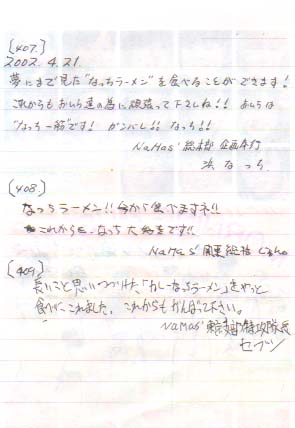 [407]
2002.4.21
夢にまで見た"なっちラーメン"を食べることができます!
これからもおいら達の為に頑張って下さいね!! おいらは
"なっち一筋"です! ガンバレ!! なっち!!
NaMas' 総本部 企画奉行
浜 なっち
[408]
なっちラーメン!!今から食べますネ!!
これからも、なっち大好きです!!
NaMas' 関東総括
[409]
長いこと思いつづけた、「カレーなっちラーメン」をやっと
食べに、これました。これからもがんばって下さい。
NaMas' 東京支部特攻隊長
セブン